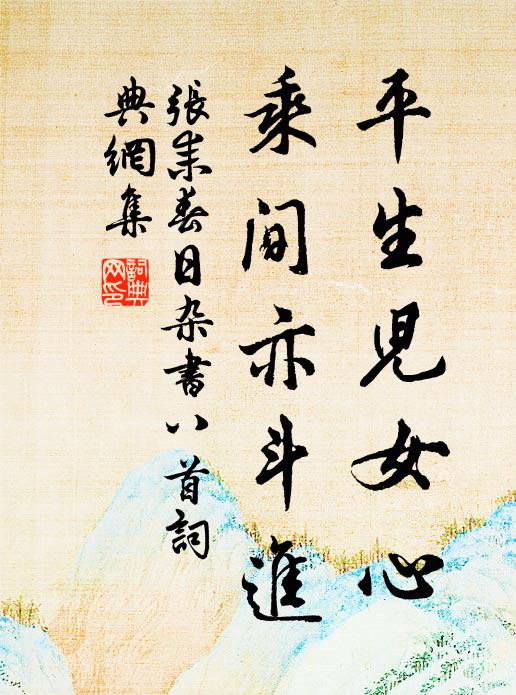 平生兒女心
乘間亦斗進
張耒春日杂書八首詞
典網集
詞典网印